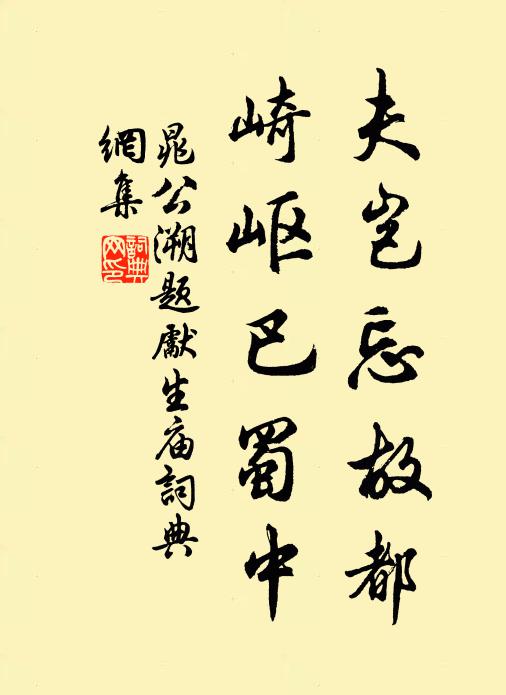 夫岂忘故都
崎岖巴蜀中
晁公溯题献生庙詞典
網集
詞典
网印